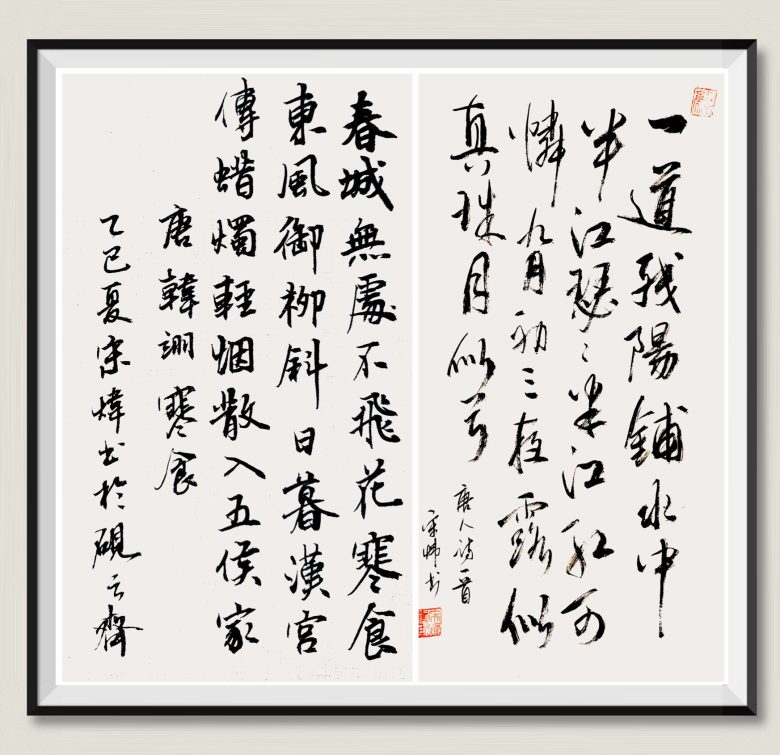 一道残陽鋪水中
半江瑟〻半江红可
憐九月初三夜露似
真珠月似弓
唐人诗一首
宋炜书
春城無處不飛花寒食
東風御柳斜日暮漢宫
傳蜡燭輕烟散入五侯家
唐韓翃寒食
乙巳夏宋煒书於硯云齋